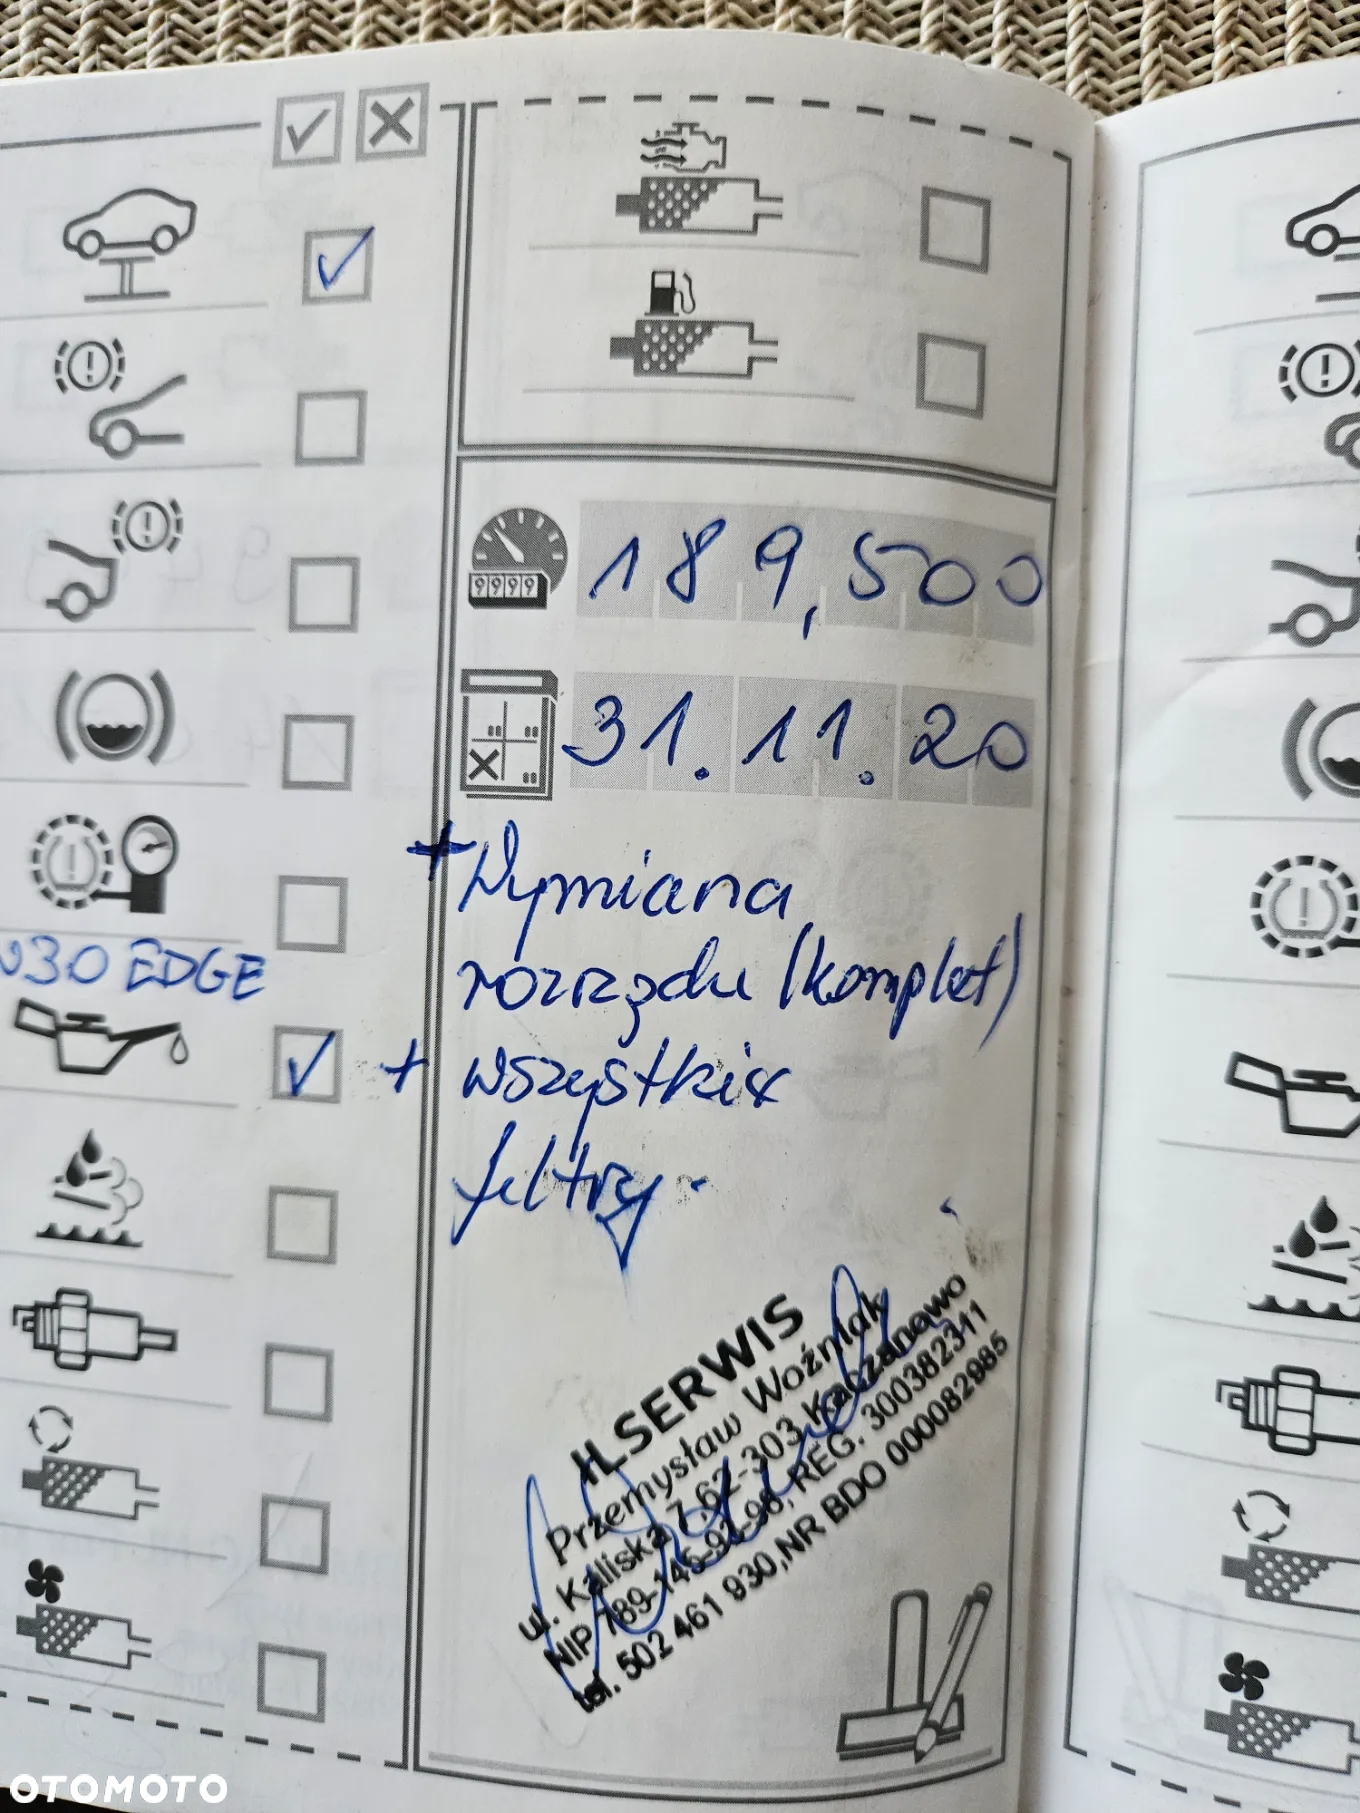 9999
189,500
31.11.20
+ Wymiana
rozrządu (komplet)
W30 EDGE
+ wszystkie
filtry.
ILSERWIS
Przemysław Woźniak
ul. Kaliska 7, 62-303 Kaczanowo
REG. 300382311
tel. 502 461 930, NR BDO 000082985
OTOMOTO